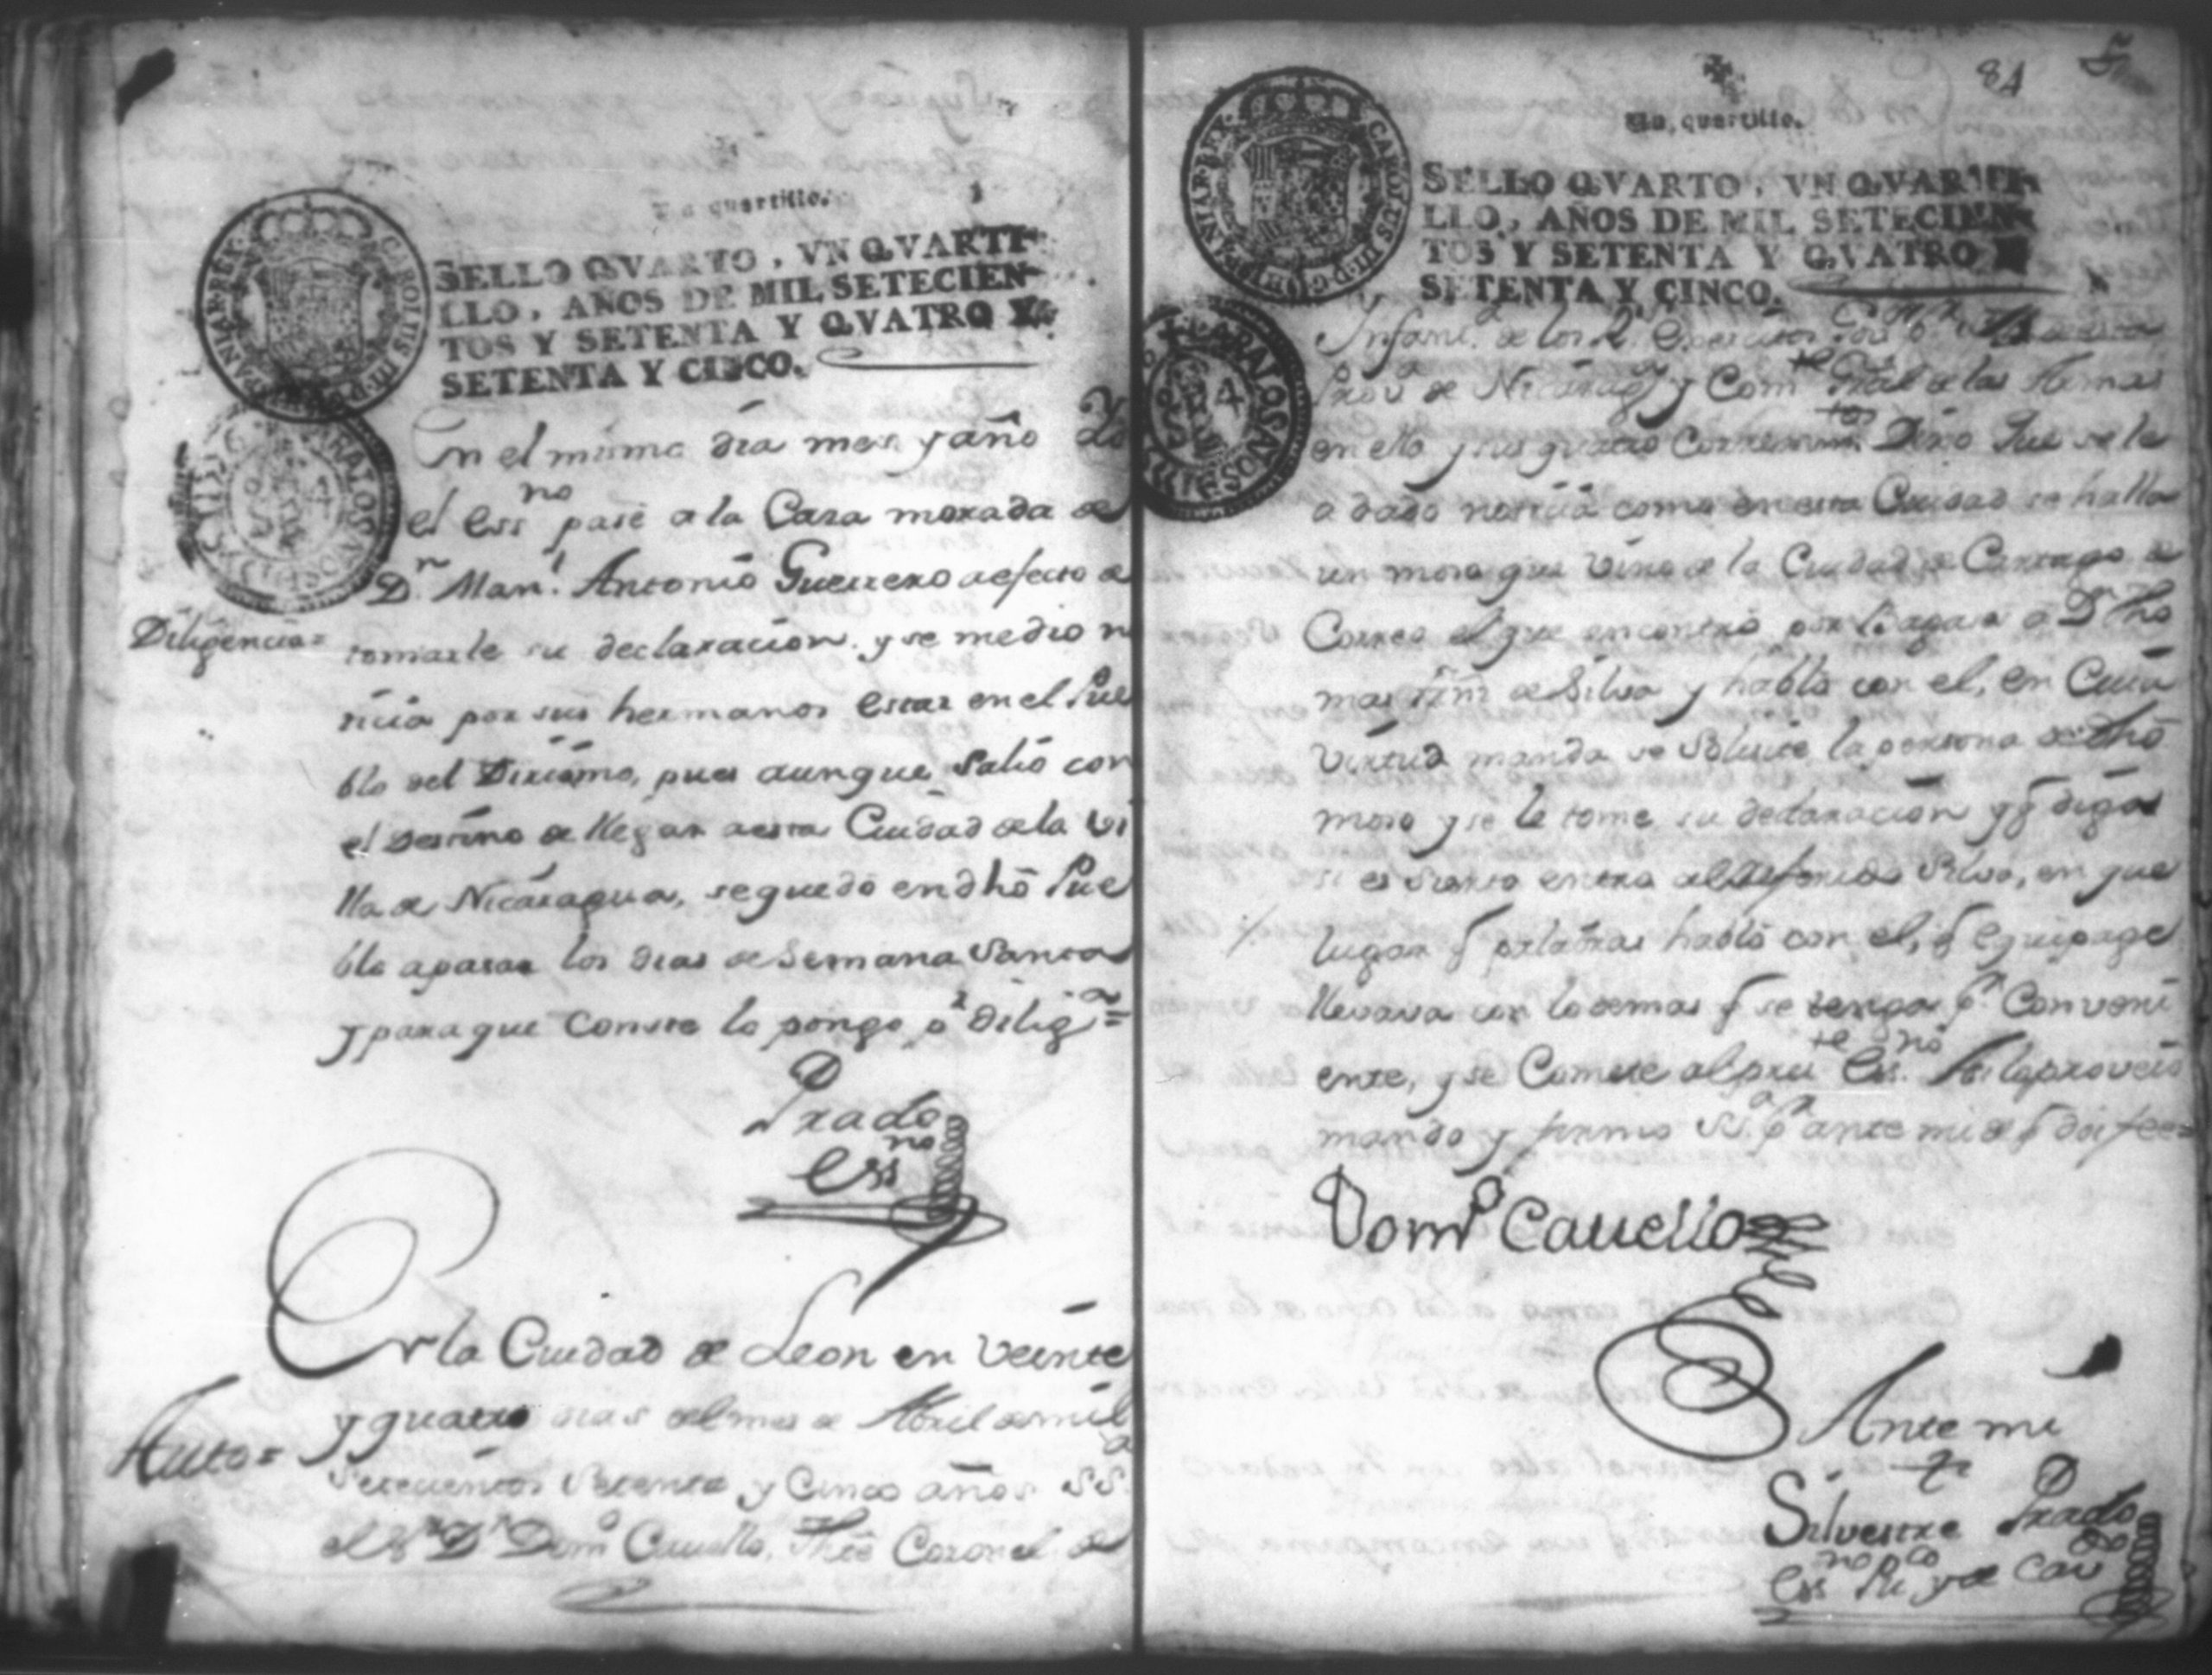 Un quartillo.
SELLO QVARTO, VN QVARTI-
LLO, AÑOS DE MIL SETECIEN-
TOS Y SETENTA Y QVATRO Y
SETENTA Y CINCO.
CAROLUS III
En el mismo dia mes y año Yo
el Essno pasé a la Casa morada de
Dn Manl Antonio Guerrero a efecto de
Diligencia= tomarle su declaracion y se me dio no
ticia por sus hermanos estar en el Pue
blo del Diriomo, pues aunque salio con
el destino de llegar a esta Ciudad de la Vi
lla de Nicaragua, se quedo en dho Pue
blo a pasar los dias de Semana Santa
y para que Conste lo pongo pr dilig=
Prado
Essno
En la Ciudad de Leon en Veinte
y quatro dias del mes de Abril de mil
Auto= Setecientos Setenta y Cinco años SSa
el Sr Dn Domo Cavello, Thẽ Coronel de
84
Un quartillo.
SELLO QVARTO, VN QVARTI-
LLO, AÑOS DE MIL SETECIEN-
TOS Y SETENTA Y QVATRO Y
SETENTA Y CINCO.
CAROLUS III
Infanta de los Rs Exercitos
Prova de Nicaragua y Comte Gral de las Armas
en ella y sus quatro Corregimtos Dixo Que se le
a dado noticia como en esta Ciudad se halla
un moso que vino de la Ciudad de Cartago de
Correo el que encontro por Bagasa a Dn Tho
mas de Silva y hablo con el, en Cuia
Virtud manda se Solicite la persona de dho
moso y se le tome su declaracion y q diga
si es Sierto entro al referido Silva, en que
lugar q palabras hablo con el, q equipage
llevava con lo demas q se tenga pr Conveni
ente, y se Comete al preste Essno Asi lo proveio
mando y firmo Ssa pr ante mi de q doi fee=
Domo Cavello
Ante mi
Silvestre Prado
Essno Puco y de Cavdo